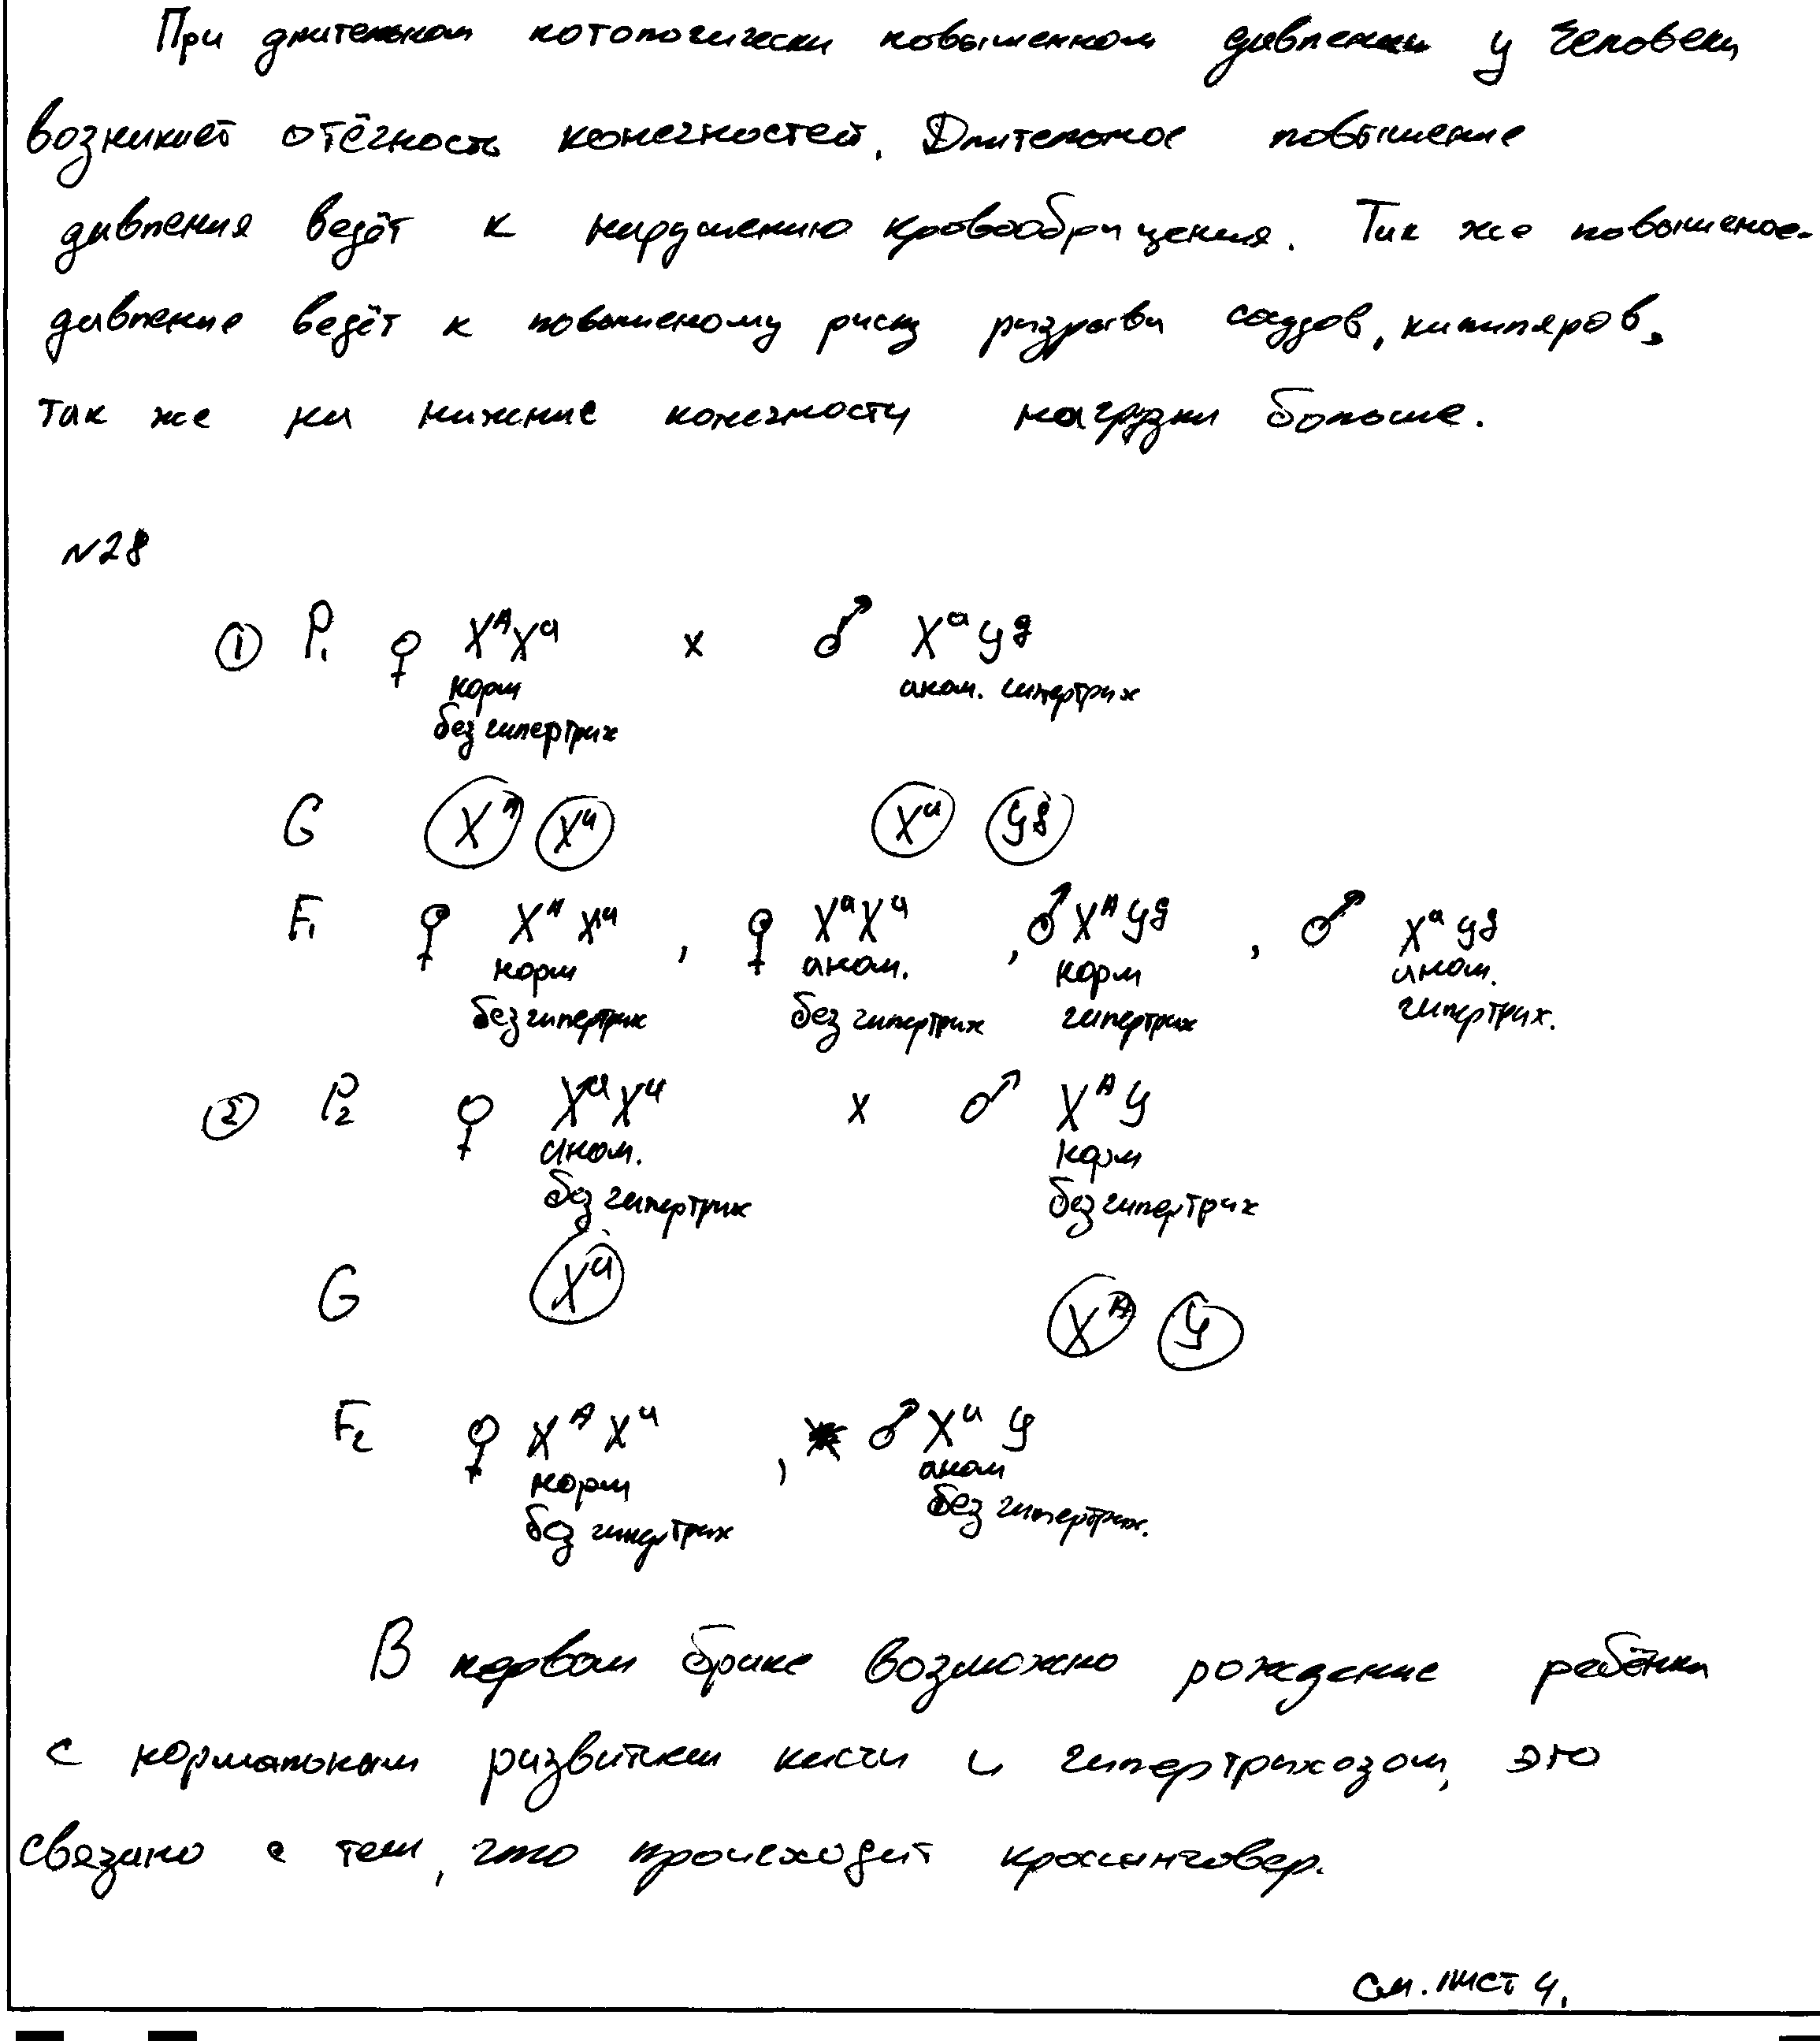 При длительном потологически повышенном давлении у человека
возникает отёчность конечностей. Длительное повышение
давления ведёт к нарушению кровообращения. Так же повышеное
давление ведёт к повышеному риску разрыва сосудов, капиляров,
так же на нижние конечности нагрузки больше.
№28
① P₁ ♀ XᴬXᵃ x ♂ XᵃYᵍ
норм аном. гипертрих
без гипертрих
G Xᴬ Xᵃ Xᵃ Yᵍ
F₁ ♀ XᴬXᵃ, ♀ XᵃXᵃ, ♂ XᴬYᵍ, ♂ XᵃYᵍ
норм аном. норм аном.
без гипертрих без гипертрих гипертрих гипертрих.
② P₂ ♀ XᵃXᵃ x ♂ XᴬY
аном. норм
без гипертрих без гипертрих
G Xᵃ Xᴬ Y
F₂ ♀ XᴬXᵃ, ♂ XᵃY
норм аном
без гипертрих без гипертрих.
В первом браке возможно рождение ребёнка
с нормальным развитием кисти и гипертрихозом, это
связано с тем, что происходит кроссинговер.
См. лист 4.